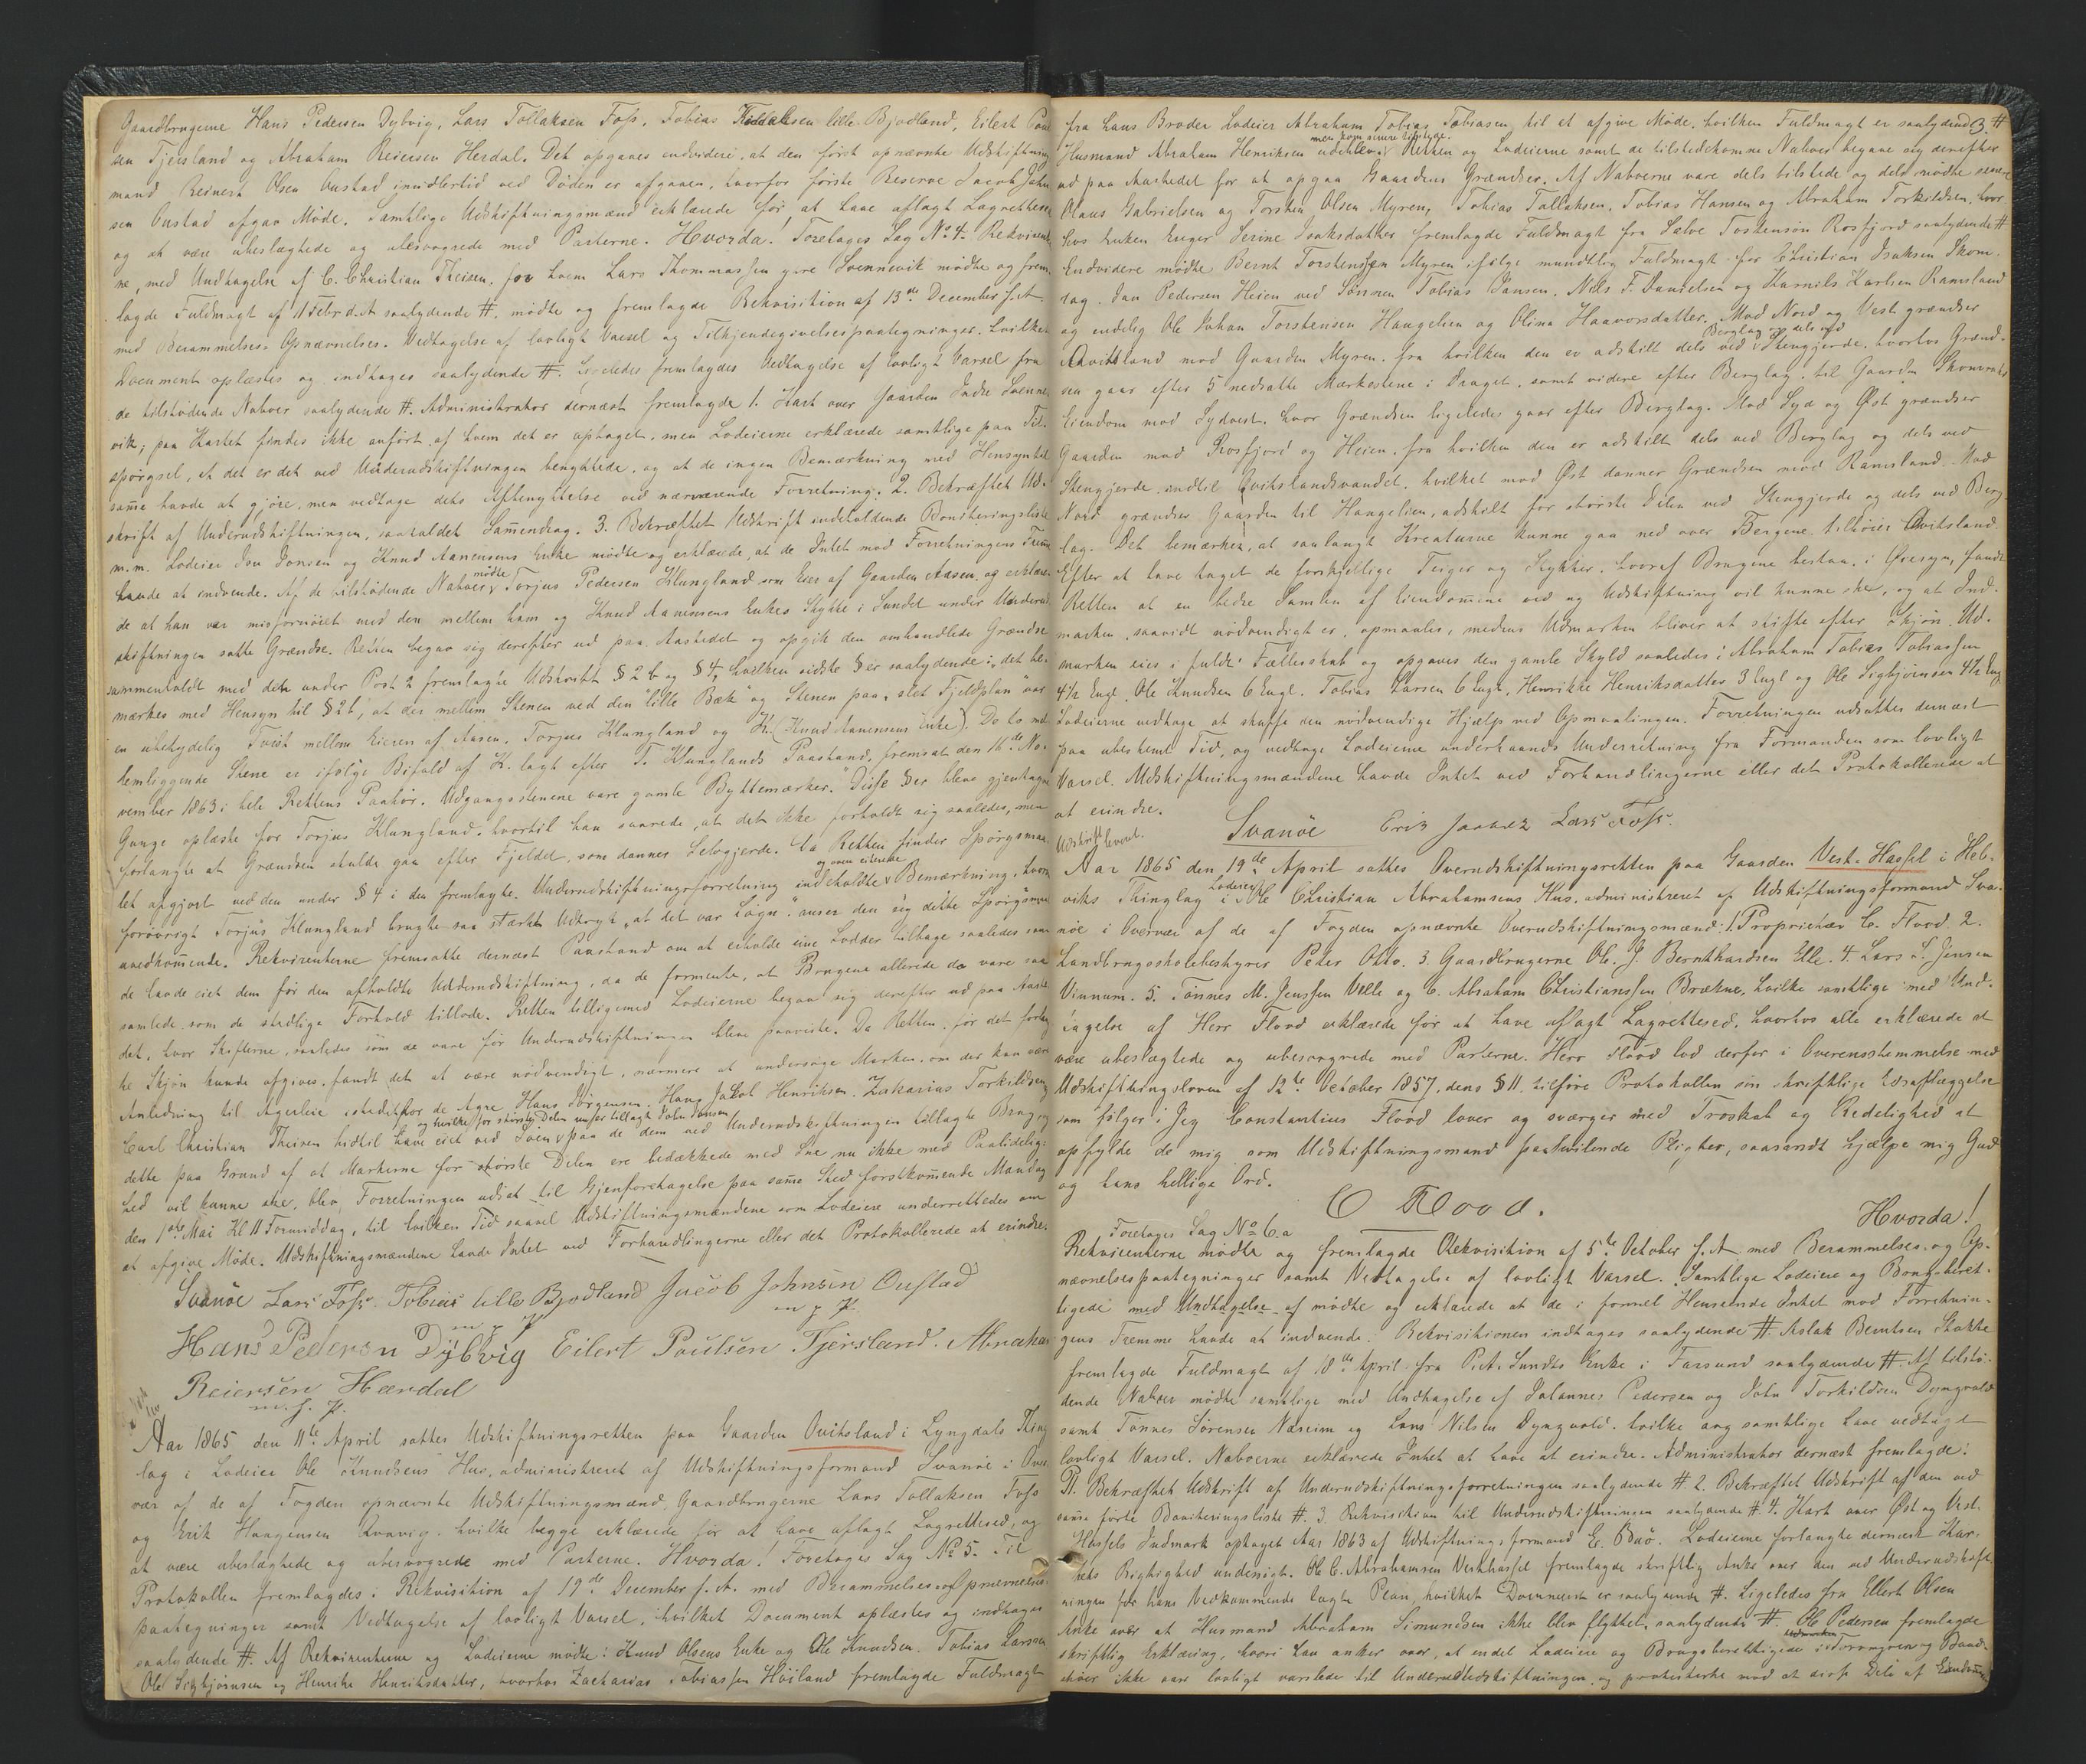 Gaardbrugerne Hans Pedersen Dybvig, Lars Tollaksen Foss, Tobias Tollaksen lille Bjodland, Eilert Poul
sen Tjersland og Abraham Reiersen Herdal. Det opgaves endvidere, at den først opnævnte Udskiftnings
mand Reinert Olsen Oustad imidlertid ved Døden er afgaaen, hvorfor første Reserve Jacob John
sen Oustad afgav Møde. Samtlige Udskiftningsmænd erklærede før at have aflagt Lagrettesed
og at være ubeslægtede og ubesvogrede med Parterne. Hvorda! Foretages Sag No 4. Rekvirenter
ne, med Undtagelse af C. Christian Theisen, for hvem Lars Thommassen yvre Svennevik mødte og frem
lagde Fuldmagt af 11 Febr d.A saalydende #. mødte og fremlagde Rekvisition af 13de December f.A.
med Berammelses- Opnævnelses- Vedtagelse af lovligt Varsel og Tilkjendegivelsespaategninger, hvilket
Document oplæstes og indtages saalydende #. Ligeledes fremlagdes Vedtagelse af lovligt Varsel fra
de tilstødende Naboer saalydende #. Administrator dernæst fremlagde 1. Kart over Gaarden Indre Svenne
vik; paa Kartet findes ikke anført af hvem det er optaget, men Lodeierne erklærede samtlige paa Til-
spørgsel, at det er det ved Underudskiftningen benyttede, og at de ingen Bemærkning med Hensyn til
samme havde at gjøre, men vedtage dets Afbenyttelse ved nærværende Forretning. 2. Bekræftet Ud-
skrift af Underudskiftningen, saakaldet Sammendrag. 3. Bekræftet Udskrift indeholdende Boniteringsliste
m.m. Lodeier Jon Jonsen og Knud Aanensens Enke mødte og erklærede, at de Intet mod Forretningens Fremme
havde at indvende. Af de tilstødende Naboer mødte Torjus Pedersen Klungland som Eier af Gaarden Aasen, og erklære-
de at han var misfornøiet med den mellem ham og Knud Aanensens Enkes Stykke i Sundet under Underud
skiftningen satte Grændse. Retten begav sig derefter ud paa Aastedet og opgik den omhandlede Grændse
sammenholdt med den under Post 2 fremlagte Udskrift § 2 b og § 4, hvilken sidste § er saalydende: „det be
mærkes med Hensyn til § 2 b, at der mellem Stenen ved den „lille Bæk" og Stenen paa „slet Fjeldplan" var
en ubetydelig Tvist mellem Eieren af Aasen, Torjus Klungland og K. (Knud Aanensens Enke). De to mel
lemliggende Stene er ifølge Bifald af K. lagt efter T. Klunglands Paastand, fremsat den 16de No-
vember 1863 i hele Rettens Paahør. Udgangsstenene vare gamle Byttemærker." Disse §er bleve gjentagne
Gange oplæste for Torjus Klungland, hvortil han svarede, at det ikke forholdt sig saaledes, men
forlangte at Grændsen skulde gaa efter Fjeldet, som dannes Selvgjerde. Da Retten finder Spørgsmaa
let afgjort ved den under § 4 i den fremlagte Underudskiftningsforretning indeholdte Bemærkning, hvor
forøvrigt Torjus Klungland brugte saa stærkt Udtryk „at det var Løgn", anser den sig dette Spørgsmaal
uvedkommende. Rekvirenterne fremsatte dernæst Paastand om at erholde sine Lodder tilbage saaledes som
de havde eiet dem før den afholdte Underudskiftning, da de formente, at Brugene allerede da vare saa
samlede som de stedlige Forhold tillode. Retten tilligemed Lodeierne begav sig derefter ud paa Aaste
det, hvor Skifterne, saaledes som de vare før Underudskiftningen bleve paaviste. Da Retten, før det forlang
te Skjøn kunde afgives, fandt det at være nødvendigt, nærmere at undersøge Marken, om der kan være
Anledning til Agerleie istedetfor de Agre Hans Jørgensen, Hans Jakob Henriksen, Zakarias Torkildsen og
Carl Christian Theisen hidtil have eiet ved Søen og hvilke for største Delen ere tillagt John Jonsen paa de dem ved Underudskiftningen tillagte Brug, og
dette paa Grund af at Markerne for største Delen ere bedækkede med Sne nu ikke med Paalidelig-
hed vil kunne ske, blev Forretningen udsat til Gjenforetagelse paa samme Sted førstkommende Mandag
den 1ste Mai Kl 11 Formiddag, til hvilken Tid saavel Udskiftningsmændene som Lodeiere underrettedes om
at afgive Møde. Udskiftningsmændene havde Intet ved Forhandlingerne eller det Protokollerede at erindre.
Svanøe Lars Foss Tobias lille Bjodland Jacob Johnsen Oustad
m p P. m p P.
Hans Pedersen Dybvig Eilert Poulsen Tjersland. Abraham
Reiersen Hærdal
m. f. P.
Aar 1865 den 11te April sattes Udskiftningsretten paa Gaarden Qvitsland i Lyngdals Thing
lag i Lodeier Ole Knudsens Hus, administreret af Udskiftningsformand Svanøe i Over
vær af de af Fogden opnævnte Udskiftningsmænd, Gaardbrugerne Lars Tollaksen Foss
og Erik Haagensen Kvavig, hvilke begge erklærede før at have aflagt Lagrettesed, og
at være ubeslægtede og ubesvogrede med Parterne. Hvorda! Foretages Sag No 5. Til
Protokollen fremlagdes: Rekvisition af 19de December f.A. med Berammelses og Opnævnelses-
paategninger samt Vedtagelse af lovligt Varsel, hvilket Document oplæstes og indtages
saalydende #. Af Rekvirenterne og Lodeierne mødte: Knud Olsens Enke og Ole Knudsen, Tobias Larssen
Ole Sigbjørnsen og Henrike Henriksdatter, hvorhos Zacharias Tobiassen Höiland fremlagde Fuldmagt
3.
fra hans Broder Lodeier Abraham Tobias Tobiasen til at afgive Møde, hvilken Fuldmagt er saalydende #
Husmand Abraham Henriksen udeblev. men kom senere tilstede. Retten og Lodeierne samt de tilstedekomne Naboer begave sig derefter
ud paa Aastedet for at opgaa Gaardens Grændser. Af Naboerne vare dels tilstede og dels mødte senere
Olaus Gabrielsen og Torsten Olsen Myren, Tobias Tallaksen, Tobias Hansen og Abraham Torkildsen, hvor
hos Enken Inger Serine Isaksdatter fremlagde Fuldmagt fra Salve Tostensön Rosfjord saalydende #
Endvidere mødte Bernt Torstensen Myren ifølge mundtlig Fuldmagt for Christian Isaksen Skom-
rag. Jan Pedersen Heien ved Sønnen Tobias Jansen, Nils F. Danielsen og Karnils Karlsen Ramsland
og endelig Ole Johan Torstensen Haugelien og Olina Haavorsdatter. Mod Nord og Vest grændser
Qvitsland mod Gaarden Myren, fra hvilken den er adskilt dels ved Berglag og dels ved Stengjerde, hvorhos Grænd-
sen gaar efter 5 nedsatte Mærkestene i Draget, samt videre efter Berglag, til Gaarden Skomrags
Eiendom mod Sydvest, hvor Grændsen ligeledes gaar efter Berglag. Mod Syd og Øst grændser
Gaarden mod Rosfjord og Heien, fra hvilken den er adskilt dels ved Berglag og dels ved
Stengjerde indtil Qvitslandsvandet, hvilket mod Øst danner Grændsen mod Ramsland. Mod
Nord grændser Gaarden til Haugelien, adskilt for største Delen ved Stengjerde og dels ved Berg-
lag. Det bemærkes, at saalangt Kreaturne kunne gaa ned over Bergene tilhører Qvitsland.
Efter at have taget de forskjellige Teiger og Stykker, hvoraf Brugene bestaa, i Øiesyn, fandt
Retten at en bedre Samling af Eiendommene ved ny Udskiftning vil kunne ske, og at Ind-
marken, saavidt nødvendigt er, opmaales, medens Udmarken bliver at skifte efter Skjøn. Ud-
marken eies i fuldt Fællesskab og opgaves den gamle Skyld saaledes: Abraham Tobias Tobiassen
4½ Engl. Ole Knudsen 6 Engl. Tobias Larsen 6 Engl. Henrikke Henriksdatter 3 Engl og Ole Sigbjørnsen 4½ Engl
Lodeierne vedtoge at skaffe den nødvendige Hjælp ved Opmaalingen. Forretningen udsattes dernæst
paa ubestemt Tid, og vedtoge Lodeierne underhaands Underretning fra Formanden som lovligt
Varsel. Udskiftningsmændene havde Intet ved Forhandlingerne eller det Protokollerede at
at erindre.
Svanöe Lars Foss.
Udskrift levert.
Aar 1865 den 19de April sattes Overudskiftningsretten paa Gaarden Vest-Hassel i Heb-
viks Thinglag i Lodeier Ole Christian Abrahamsens Hus, administreret af Udskiftningsformand Sva-
nöe i Overvær af de af Fogden opnævnte Overudskiftningsmænd: 1. Proprietær C. Flood 2.
Landbrugsskolebestyrer Peter Otto. 3. Gaardbrugerne Ole J. Bernthardsen Elle. 4. Lars L. Jensen
Vinnum. 5. Tønnes M. Jenssen Velle og 6. Abraham Christianssen Brækne, hvilke samtlige med Und-
tagelse af Herr Flood erklærede før at have aflagt Lagrettesed, hvorhos alle erklærede at
være ubeslægtede og ubesvogrede med Parterne. Herr Flood lod derfor i Overensstemmelse med
Udskiftningsloven af 12te October 1857, dens § 11 tilføre Protokollen sin skriftlige Edsaflæggelse
som følger: Jeg Constantius Flood lover og sværger med Troskab og Redelighed at
opfylde de mig som Udskiftningsmand paahvilende Pligter, saasandt hjælpe mig Gud
og hans hellige Ord.
C Flood.
Hvorda!
Foretages Sag No 6.a
Rekvirenterne mødte og fremlagde Rekvisition af 5te October f.A med Berammelses- og Op-
nævnelsespaategninger samt Vedtagelse af lovligt Varsel. Samtlige Lodeiere og Brugsberet-
tigede med Undtagelse af mødte og erklærede at de i formel Henseende Intet mod Forretnin-
gens Fremme havde at indvende. Rekvisitionen indtages saalydende #. Aslak Berntsen Stokke
fremlagde Fuldmagt af 18de April fra P. A. Lundts Enke i Farsund saalydende #. Af tilstø-
dende Naboer mødte samtlige med Undtagelse af Johannes Pedersen og John Torkildsen Dyngvold
samt Tønnes Sørensen Næseim og Lars Nilsen Dyngvold, hvilke dog samtlige have vedtaget
lovligt Varsel. Naboerne erklærede Intet at have at erindre. Administrator dernæst fremlagde:
1. Bekræftet Udskrift af Underudskiftningsforretningen saalydende #. 2. Bekræftet Udskrift af den ved
samme førte Boniteringsliste #. 3. Rekvisition til Underudskiftningen saalydende #. 4. Kart over Øst og Vest-
Hassels Indmark optaget Aar 1863 af Udskiftningsformand E. Boø. Lodeierne forlangte dernæst Kar-
tets Rigtighed undersøgt. Ole C. Abrahamsen Vesthassel fremlagde skriftlig Anke over den ved Underudskift-
ningen for hans Vedkommende lagte Plan, hvilket Document er saalydende #. Ligeledes fra Ellert Olsen
Anke over at Husmand Abraham Simundsen ikke blev flyttet, saalydende #. Ole Pedersen fremlagde
skriftlig Erklæring, hvori han anker over, at endel Lodeiere og Brugsberettigede i
ikke vare lovligt varslede til Underudskiftningen, og protesterte mod at disse Dele af Eiendommen